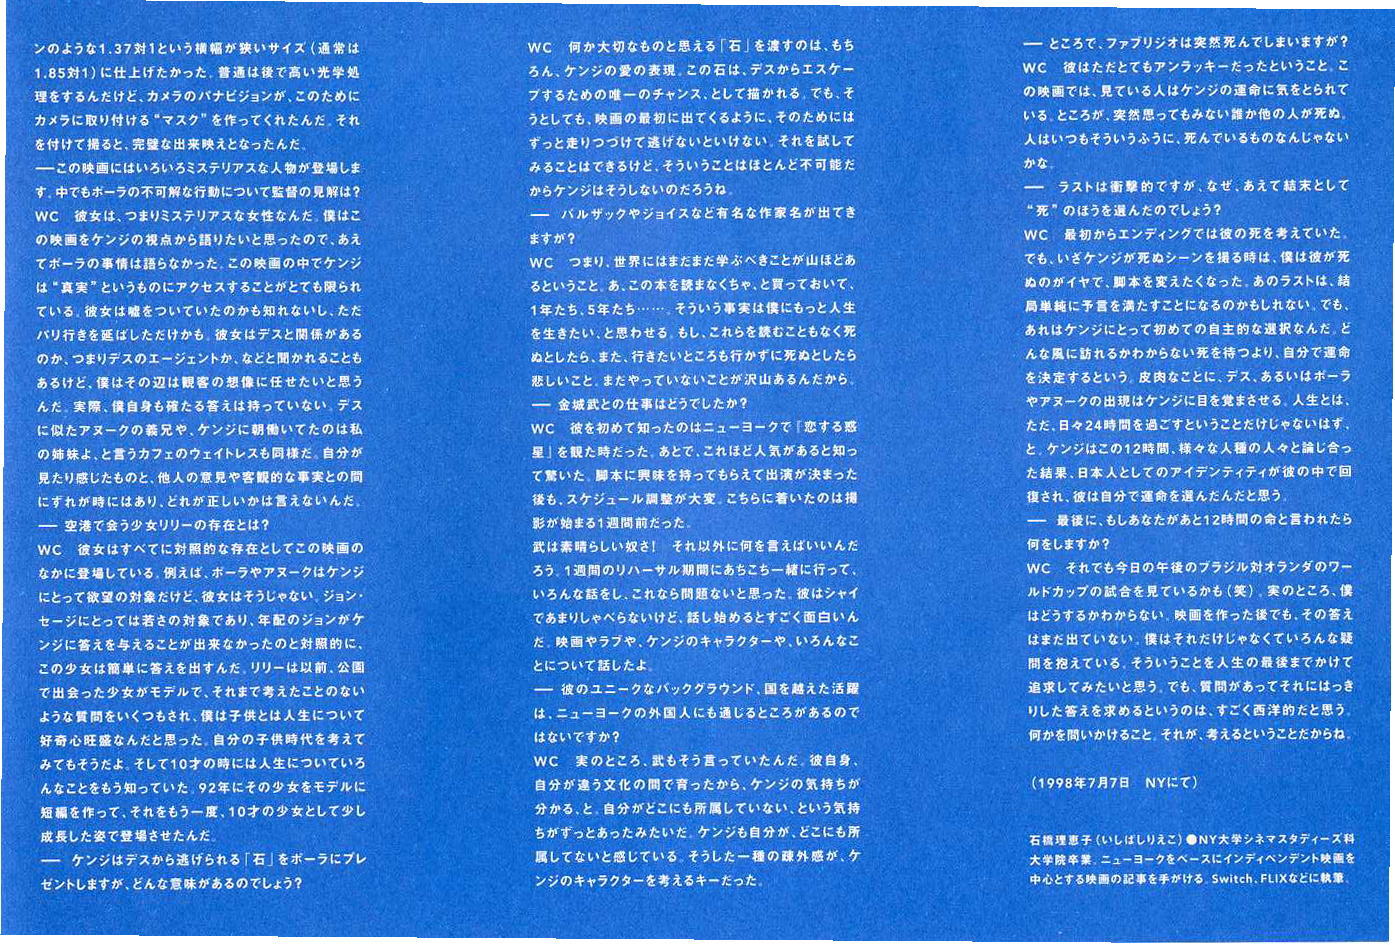 ンのような1.37対1という横幅が狭いサイズ（通常は
1.85対1）に仕上げたかった。普通は後で高い光学処
理をするんだけど、カメラのパナビジョンが、このために
カメラに取り付ける“マスク”を作ってくれたんだ。それ
を付けて撮ると、完璧な出来映えとなったんだ。
──この映画にはいろいろミステリアスな人物が登場しま
す。中でもポーラの不可解な行動について監督の見解は？
WC　彼女は、つまりミステリアスな女性なんだ。僕はこ
の映画をケンジの視点から語りたいと思ったので、あえ
てポーラの事情は語らなかった。この映画の中でケンジ
は“真実”というものにアクセスすることがとても限られ
ている。彼女は嘘をついていたのかも知れないし、ただ
パリ行きを延ばしただけかも。彼女はデスと関係がある
のか、つまりデスのエージェントか、などと聞かれることも
あるけど、僕はその辺は観客の想像に任せたいと思う
んだ。実際、僕自身も確たる答えは持っていない。デス
に似たアヌークの義兄や、ケンジに朝働いてたのは私
の姉妹よ、と言うカフェのウェイトレスも同様だ。自分が
見たり感じたものと、他人の意見や客観的な事実との間
にずれが時にはあり、どれが正しいかは言えないんだ。
── 空港で会う少女リリーの存在とは？
WC　彼女はすべてに対照的な存在としてこの映画の
なかに登場している。例えば、ポーラやアヌークはケンジ
にとって欲望の対象だけど、彼女はそうじゃない。ジョン・
セージにとっては若さの対象であり、年配のジョンがケ
ンジに答えを与えることが出来なかったのと対照的に、
この少女は簡単に答えを出すんだ。リリーは以前、公園
で出会った少女がモデルで、それまで考えたことのない
ような質問をいくつもされ、僕は子供とは人生について
好奇心旺盛なんだと思った。自分の子供時代を考えて
みてもそうだよ。そして10才の時には人生についていろ
んなことをもう知っていた。92年にその少女をモデルに
短編を作って、それをもう一度、10才の少女として少し
成長した姿で登場させたんだ。
── ケンジはデスから逃げられる「石」をポーラにプレ
ゼントしますが、どんな意味があるのでしょう？
WC　何か大切なものと思える「石」を渡すのは、もち
ろん、ケンジの愛の表現。この石は、デスからエスケー
プするための唯一のチャンス、として描かれる。でも、そ
うとしても、映画の最初に出てくるように、そのためには
ずっと走りつづけて逃げないといけない。それを試して
みることはできるけど、そういうことはほとんど不可能だ
からケンジはそうしないのだろうね。
── バルザックやジョイスなど有名な作家名が出てき
ますが？
WC　つまり、世界にはまだまだ学ぶべきことが山ほどあ
るということ。あ、この本を読まなくちゃ、と買っておいて、
1年たち、5年たち……。そういう事実は僕にもっと人生
を生きたい、と思わせる。もし、これらを読むこともなく死
ぬとしたら、また、行きたいところも行かずに死ぬとしたら
悲しいこと。まだやっていないことが沢山あるんだから。
── 金城武との仕事はどうでしたか？
WC　彼を初めて知ったのはニューヨークで『恋する惑
星』を観た時だった。あとで、これほど人気があると知っ
て驚いた。脚本に興味を持ってもらえて出演が決まった
後も、スケジュール調整が大変。こちらに着いたのは撮
影が始まる1週間前だった。
武は素晴らしい奴さ！　それ以外に何を言えばいいんだ
ろう。1週間のリハーサル期間にあちこち一緒に行って、
いろんな話をし、これなら問題ないと思った。彼はシャイ
であまりしゃべらないけど、話し始めるとすごく面白いん
だ。映画やラブや、ケンジのキャラクターや、いろんなこ
とについて話したよ。
── 彼のユニークなバックグラウンド、国を越えた活躍
は、ニューヨークの外国人にも通じるところがあるので
はないですか？
WC　実のところ、武もそう言っていたんだ。彼自身、
自分が違う文化の間で育ったから、ケンジの気持ちが
分かる、と。自分がどこにも所属していない、という気持
ちがずっとあったみたいだ。ケンジも自分が、どこにも所
属してないと感じている。そうした一種の疎外感が、ケ
ンジのキャラクターを考えるキーだった。
── ところで、ファブリジオは突然死んでしまいますが？
WC　彼はただとてもアンラッキーだったということ。こ
の映画では、見ている人はケンジの運命に気をとられて
いる。ところが、突然思ってもみない誰か他の人が死ぬ。
人はいつもそういうふうに、死んでいるものなんじゃない
かな。
── ラストは衝撃的ですが、なぜ、あえて結末として
“死”のほうを選んだのでしょう？
WC　最初からエンディングでは彼の死を考えていた。
でも、いざケンジが死ぬシーンを撮る時は、僕は彼が死
ぬのがイヤで、脚本を変えたくなった。あのラストは、結
局単純に予言を満たすことになるのかもしれない。でも、
あれはケンジにとって初めての自主的な選択なんだ。ど
んな風に訪れるかわからない死を待つより、自分で運命
を決定するという。皮肉なことに、デス、あるいはポーラ
やアヌークの出現はケンジに目を覚まさせる。人生とは、
ただ、日々24時間を過ごすということだけじゃないはず、
と。ケンジはこの12時間、様々な人種の人々と論じ合っ
た結果、日本人としてのアイデンティティが彼の中で回
復され、彼は自分で運命を選んだんだと思う。
── 最後に、もしあなたがあと12時間の命と言われたら
何をしますか？
WC　それでも今日の午後のブラジル対オランダのワー
ルドカップの試合を見ているかも（笑）。実のところ、僕
はどうするかわからない。映画を作った後でも、その答え
はまだ出ていない。僕はそれだけじゃなくていろんな疑
問を抱えている。そういうことを人生の最後までかけて
追求してみたいと思う。でも、質問があってそれにはっき
りした答えを求めるというのは、すごく西洋的だと思う。
何かを問いかけること。それが、考えるということだからね。
（1998年7月7日　NYにて）
石橋理恵子（いしばしりえこ）●NY大学シネマスタディーズ科
大学院卒業。ニューヨークをベースにインディペンデント映画を
中心とする映画の記事を手がける。Switch、FLIXなどに執筆。